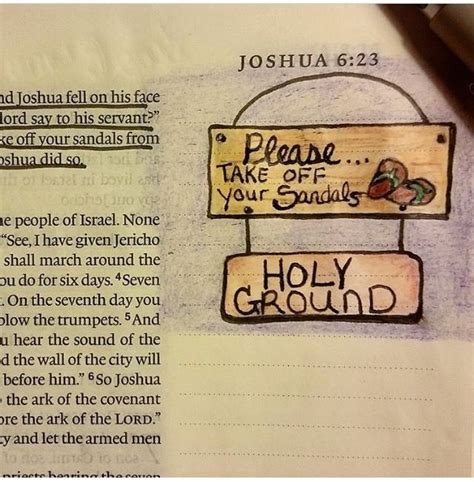 JOSHUA 6:23
nd Joshua fell on his face
lord say to his servant?"
ke off your sandals from
oshua did so.
he people of Israel. None
"See, I have given Jericho
shall march around the
ou do for six days. 4Seven
. On the seventh day you
blow the trumpets. 5And
u hear the sound of the
d the wall of the city will
before him." 6So Joshua
the ark of the covenant
ore the ark of the LORD."
ty and let the armed men
priests bearing the seven
Please...
TAKE OFF
your Sandals
HOLY
GROUND